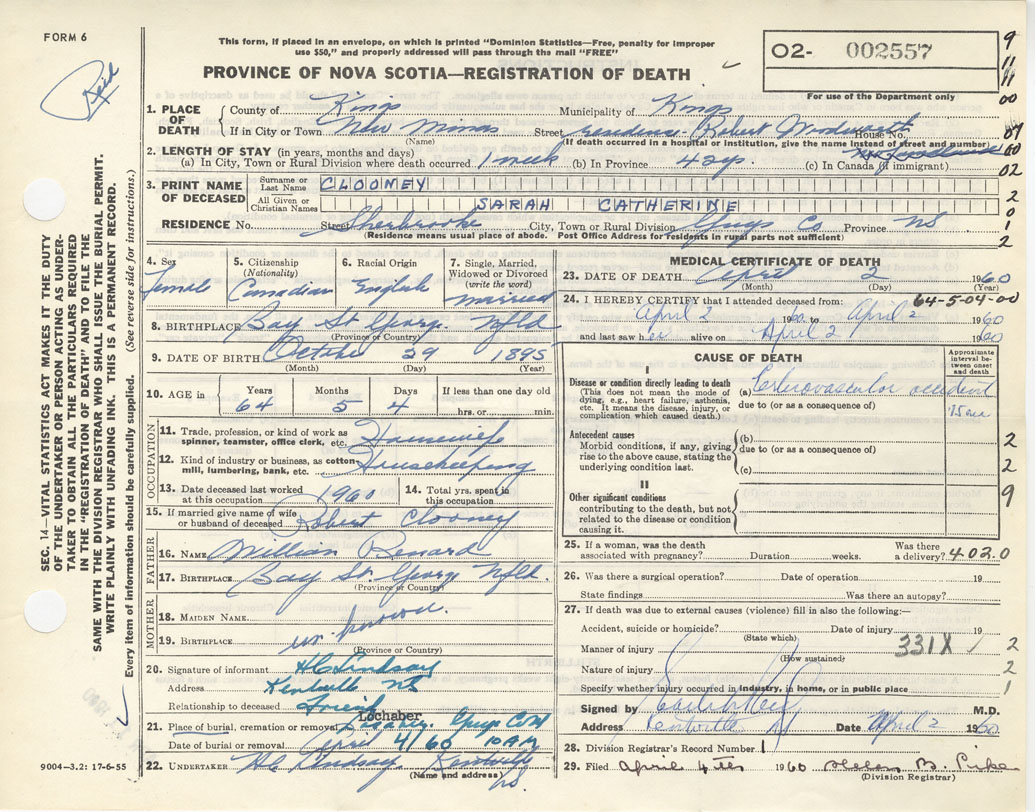 FORM 6
This form, if placed in an envelope, on which is printed "Dominion Statistics—Free, penalty for improper
use $50," and properly addressed will pass through the mail "FREE"
O2- 002557
PROVINCE OF NOVA SCOTIA—REGISTRATION OF DEATH
For use of the Department only
9
11
11
00
07
60
02
2
0
1
2
Reid
1. PLACE OF DEATH
County of Kings Municipality of Kings
If in City or Town New Minas Street residence- Robert Woodworth House No.
(Name) (If death occurred in a hospital or institution, give the name instead of street and number)
2. LENGTH OF STAY (in years, months and days)
(a) In City, Town or Rural Division where death occurred 1 week (b) In Province 4 (c) In Canada (if immigrant)
3. PRINT NAME OF DECEASED
Surname or Last Name CLOONEY
All Given or Christian Names SARAH CATHERINE
RESIDENCE No. Street Sherbrooke City, Town or Rural Division Guys Co Province NS
(Residence means usual place of abode. Post Office Address for residents in rural parts not sufficient)
4. Sex Female
5. Citizenship (Nationality) Canadian
6. Racial Origin English
7. Single, Married, Widowed or Divorced (write the word) married
8. BIRTHPLACE Bay St George. Nfld
(Province or Country)
9. DATE OF BIRTH October 29 1895
(Month) (Day) (Year)
10. AGE in Years 64 Months 5 Days 4 If less than one day old hrs. or min.
OCCUPATION
11. Trade, profession, or kind of work as spinner, teamster, office clerk, etc. Housewife
12. Kind of industry or business, as cotton mill, lumbering, bank, etc. Housekeeping
13. Date deceased last worked at this occupation 1960 14. Total yrs. spent in this occupation
15. If married give name of wife or husband of deceased Robert Clooney
FATHER
16. NAME William Benard
17. BIRTHPLACE Bay St. George Nfld.
(Province or Country)
MOTHER
18. MAIDEN NAME
19. BIRTHPLACE unknown
(Province or Country)
20. Signature of informant HC Lindsay
Address Kentville NS
Relationship to deceased Friend
Lochaber
21. Place of burial, cremation or removal Guys Co NS
Date of burial or removal April 4/60 10 AM
22. UNDERTAKER HC Lindsay Kentville
(Name and address) NS.
MEDICAL CERTIFICATE OF DEATH
23. DATE OF DEATH April 2 1960
(Month) (Day) (Year)
24. I HEREBY CERTIFY that I attended deceased from: 64-5-04-00
April 2 1960 to April 2 1960
and last saw her alive on April 2 1960
CAUSE OF DEATH
Approximate interval between onset and death
I
Disease or condition directly leading to death
(This does not mean the mode of dying, e.g., heart failure, asthenia, etc. It means the disease, injury, or complication which caused death.)
(a) Cerebrovascular accident
due to (or as a consequence of)
Antecedent causes
Morbid conditions, if any, giving rise to the above cause, stating the underlying condition last.
(b)
due to (or as a consequence of)
(c)
2
2
II
Other significant conditions
contributing to the death, but not related to the disease or condition causing it.
9
25. If a woman, was the death associated with pregnancy? Duration weeks. Was there a delivery? 4020
26. Was there a surgical operation? Date of operation 19
State findings Was there an autopsy?
27. If death was due to external causes (violence) fill in also the following:—
Accident, suicide or homicide? Date of injury 19
(State which)
Manner of injury 331X
(How sustained)
2
Nature of injury
2
Specify whether injury occurred in industry, in home, or in public place
1
Signed by M.D.
Address Kentville NS Date April 2 1960
28. Division Registrar's Record Number 1
29. Filed April 4th 1960 Helen B. Pike
(Division Registrar)
SEC. 14—VITAL STATISTICS ACT MAKES IT THE DUTY
OF THE UNDERTAKER OR PERSON ACTING AS UNDER-
TAKER TO OBTAIN ALL THE PARTICULARS REQUIRED
IN THE "REGISTRATION OF DEATH" AND TO FILE THE
SAME WITH THE DIVISION REGISTRAR WHO SHALL ISSUE THE BURIAL PERMIT.
WRITE PLAINLY WITH UNFADING INK. THIS IS A PERMANENT RECORD.
Every item of information should be carefully supplied. (See reverse side for instructions.)
9004-3.2: 17-6-55